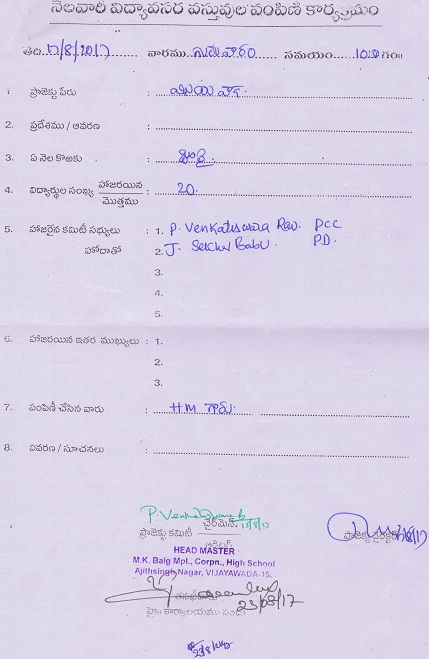 నెలవారీ విద్యావసర వస్తువుల పంపిణి కార్యక్రమం
తేది 17/8/2017 వారము గురువారం సమయం 10:30 గం॥
1. ప్రాజెక్టు పేరు :
2. ప్రదేశము / ఆవరణ :
3. ఏ నెల కొఱకు : జులై
4. విద్యార్థుల సంఖ్య హాజరయిన / మొత్తము : 20.
5. హాజరైన కమిటీ సభ్యులు : 1. P. Venkateswara Rao. PCC
హోదాతో 2. J. Sekhar Babu. P.D.
3.
4.
5.
6. హాజరయిన ఇతర ముఖ్యులు : 1.
2.
3.
7. పంపిణీ చేసిన వారు : HM గారు
8. వివరణ / సూచనలు :
ప్రాజెక్టు కమిటీ చైర్‌మెన్ 17/8/17
ప్రాజెక్టు డైరెక్టర్
HEAD MASTER
M.K. Baig Mpl., Corpn., High School
Ajithsingh Nagar, VIJAYAWADA-15.
హై॥ కార్యాలయము 23/08/17